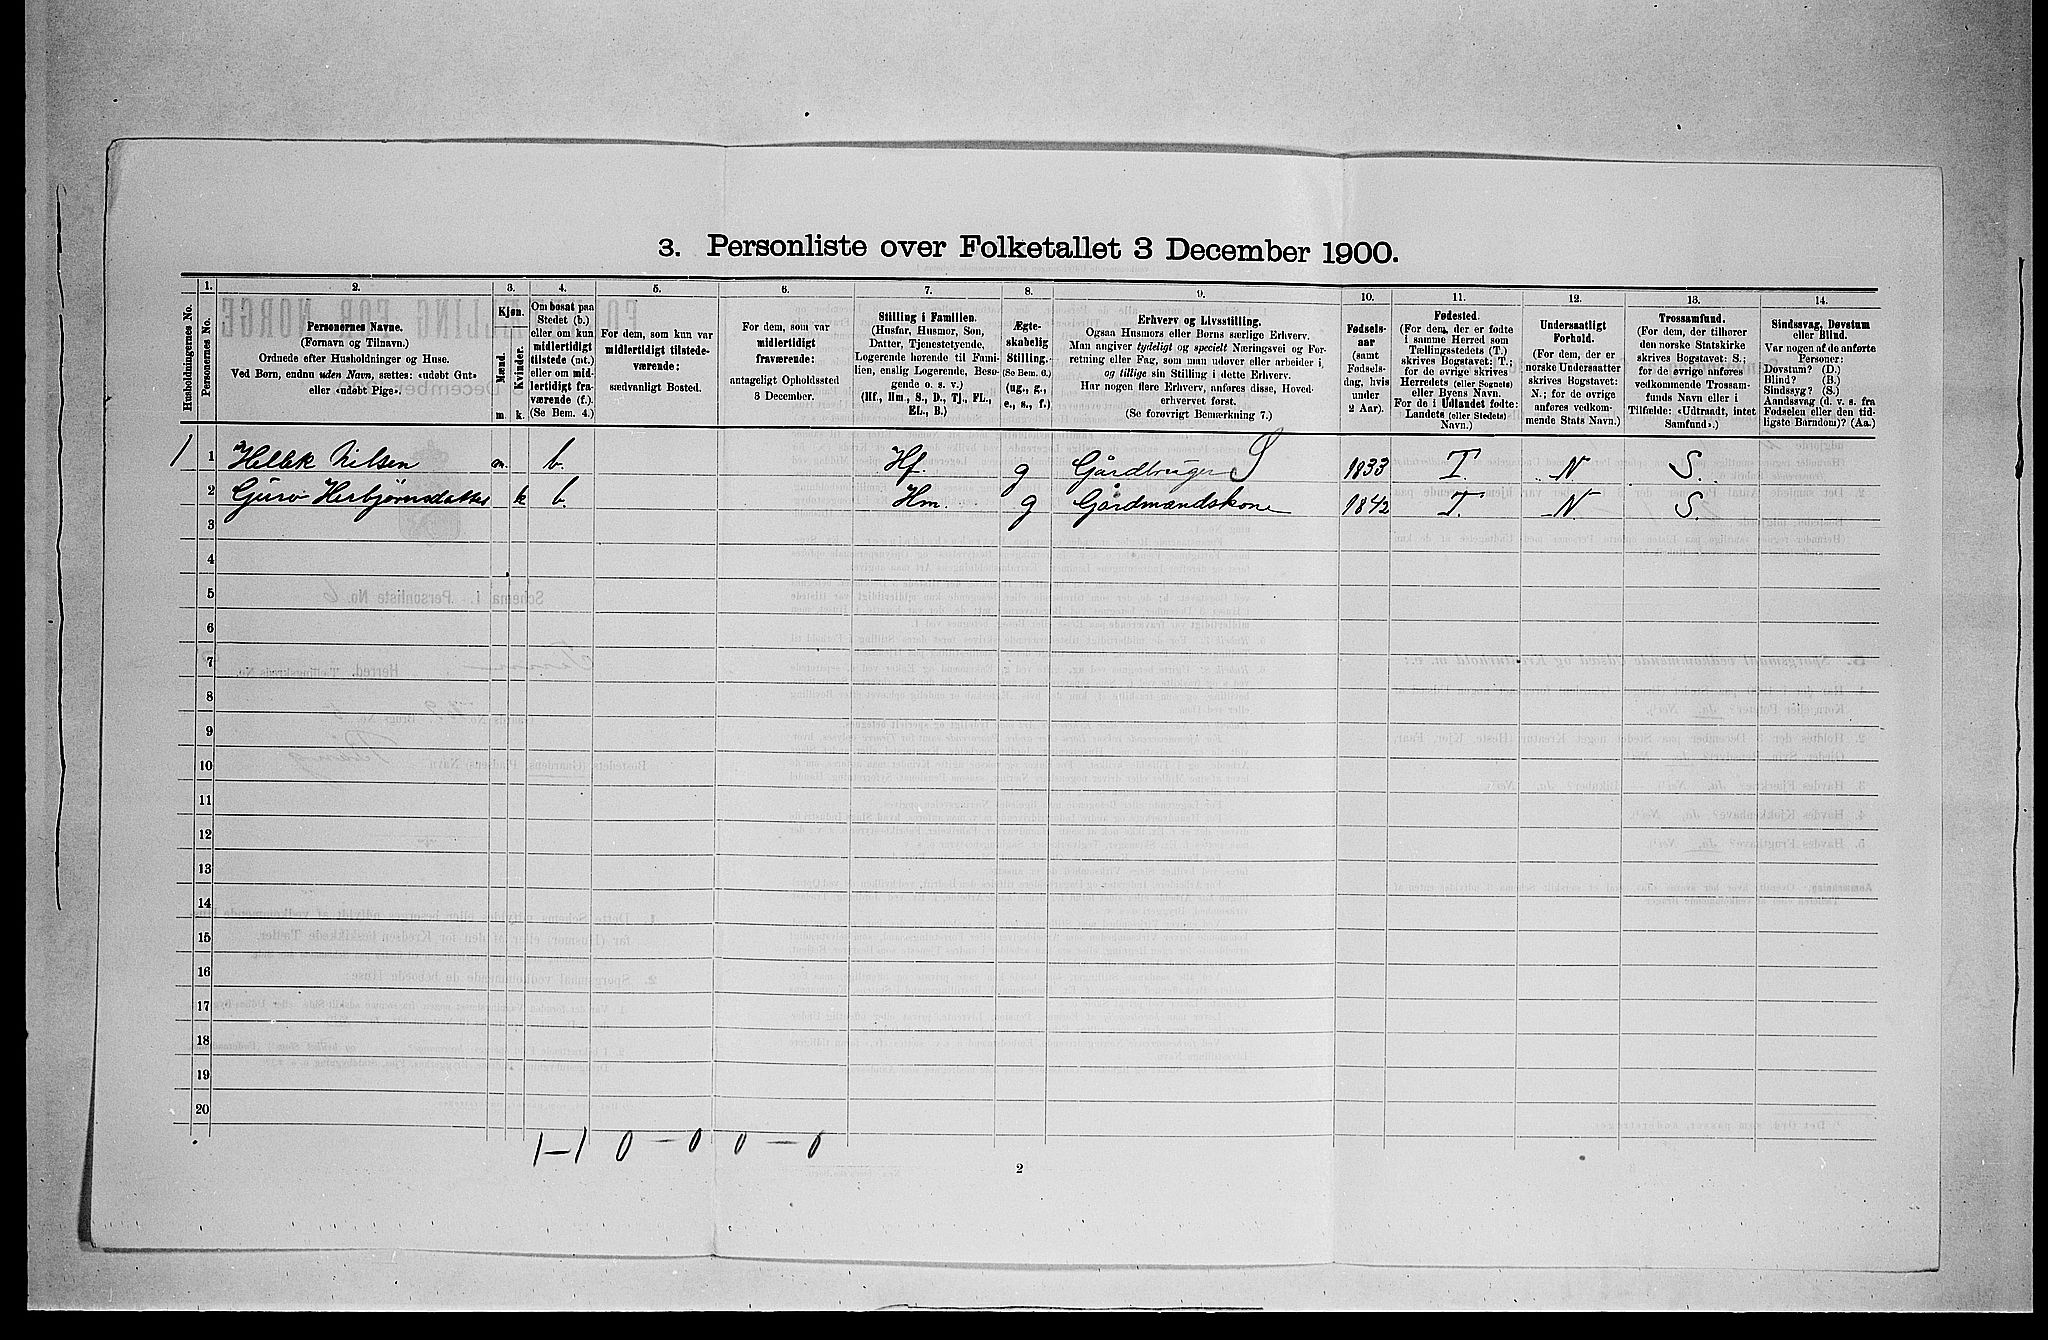 3. Personliste over Folketallet 3 December 1900.
Husholdningernes No.
1.
Personernes No.
2.
Personernes Navne.
(Fornavn og Tilnavn.)
Ordnede efter Husholdninger og Huse.
Ved Børn, endnu uden Navn, sættes: «udøbt Gut»
eller «udøbt Pige».
3.
Kjøn.
Mænd.
Kvinder.
m.
k.
4.
Om bosat paa
Stedet (b.)
eller om kun
midlertidigt
tilstede (mt.)
eller om mid-
lertidigt fra-
værende (f.).
(Se Bem. 4.)
5.
For dem, som kun var
midlertidigt tilstede-
værende:
sædvanligt Bosted.
6.
For dem, som var
midlertidigt
fraværende:
antageligt Opholdssted
3 December.
7.
Stilling i Familien.
(Husfar, Husmor, Søn,
Datter, Tjenestetyende,
Logerende hørende til Fami-
lien, enslig Logerende, Besø-
gende o. s. v.)
(Hf., Hm., S., D., Tj., FL.,
EL., B.)
8.
Ægte-
skabelig
Stilling.
(Se Bem. 6.)
(ug., g.,
e., s., f.)
9.
Erhverv og Livsstilling.
Ogsaa Husmors eller Børns særlige Erhverv.
Man angiver tydeligt og specielt Næringsvei og For-
retning eller Fag, som man udøver eller arbeider i,
og tillige sin Stilling i dette Erhverv.
Har nogen flere Erhverv, anføres disse, Hoved-
erhvervet først.
(Se forøvrigt Bemerkning 7.)
10.
Fødsels-
aar
(samt
Fødsels-
dag, hvis
under
2 Aar).
11.
Fødested.
(For dem, der er fødte
i samme Herred som
Tællingsstedets (T.)
skrives Bogstavet: T.;
for de øvrige skrives
Herredets (eller Sognets)
eller Byens Navn.
For de i Udlandet fødte:
Landets (eller Stedets)
Navn.)
12.
Undersaatligt
Forhold.
(For dem, der er
norske Undersaatter
skrives Bogstavet:
N.; for de øvrige
anføres vedkom-
mende Stats Navn.)
13.
Trossamfund.
(For dem, der tilhører
den norske Statskirke
skrives Bogstavet: S.;
for de øvrige anføres
vedkommende Trossam-
funds Navn eller i
Tilfælde: «Udtraadt, intet
Samfund».)
14.
Sindssvag, Døvstum
eller Blind.
Var nogen af de anførte
Personer:
Døvstum? (D.)
Blind? (B.)
Sindssyg? (S.)
Aandssvag (d. v. s. fra
Fødselen eller den tid-
ligste Barndom)? (Aa.)
1 1 Hellek Nilsen m. b. Hf. g Gårdbruger S 1833 T. N S.
2 Guro Herbjørnsdatter k b. Hm. g Gårdmandskone 1842 T. N. S.
3
4
5
6
7
8
9
10
11
12
13
14
15
16
17
18
19
20
1–1 0–0 0–0
2